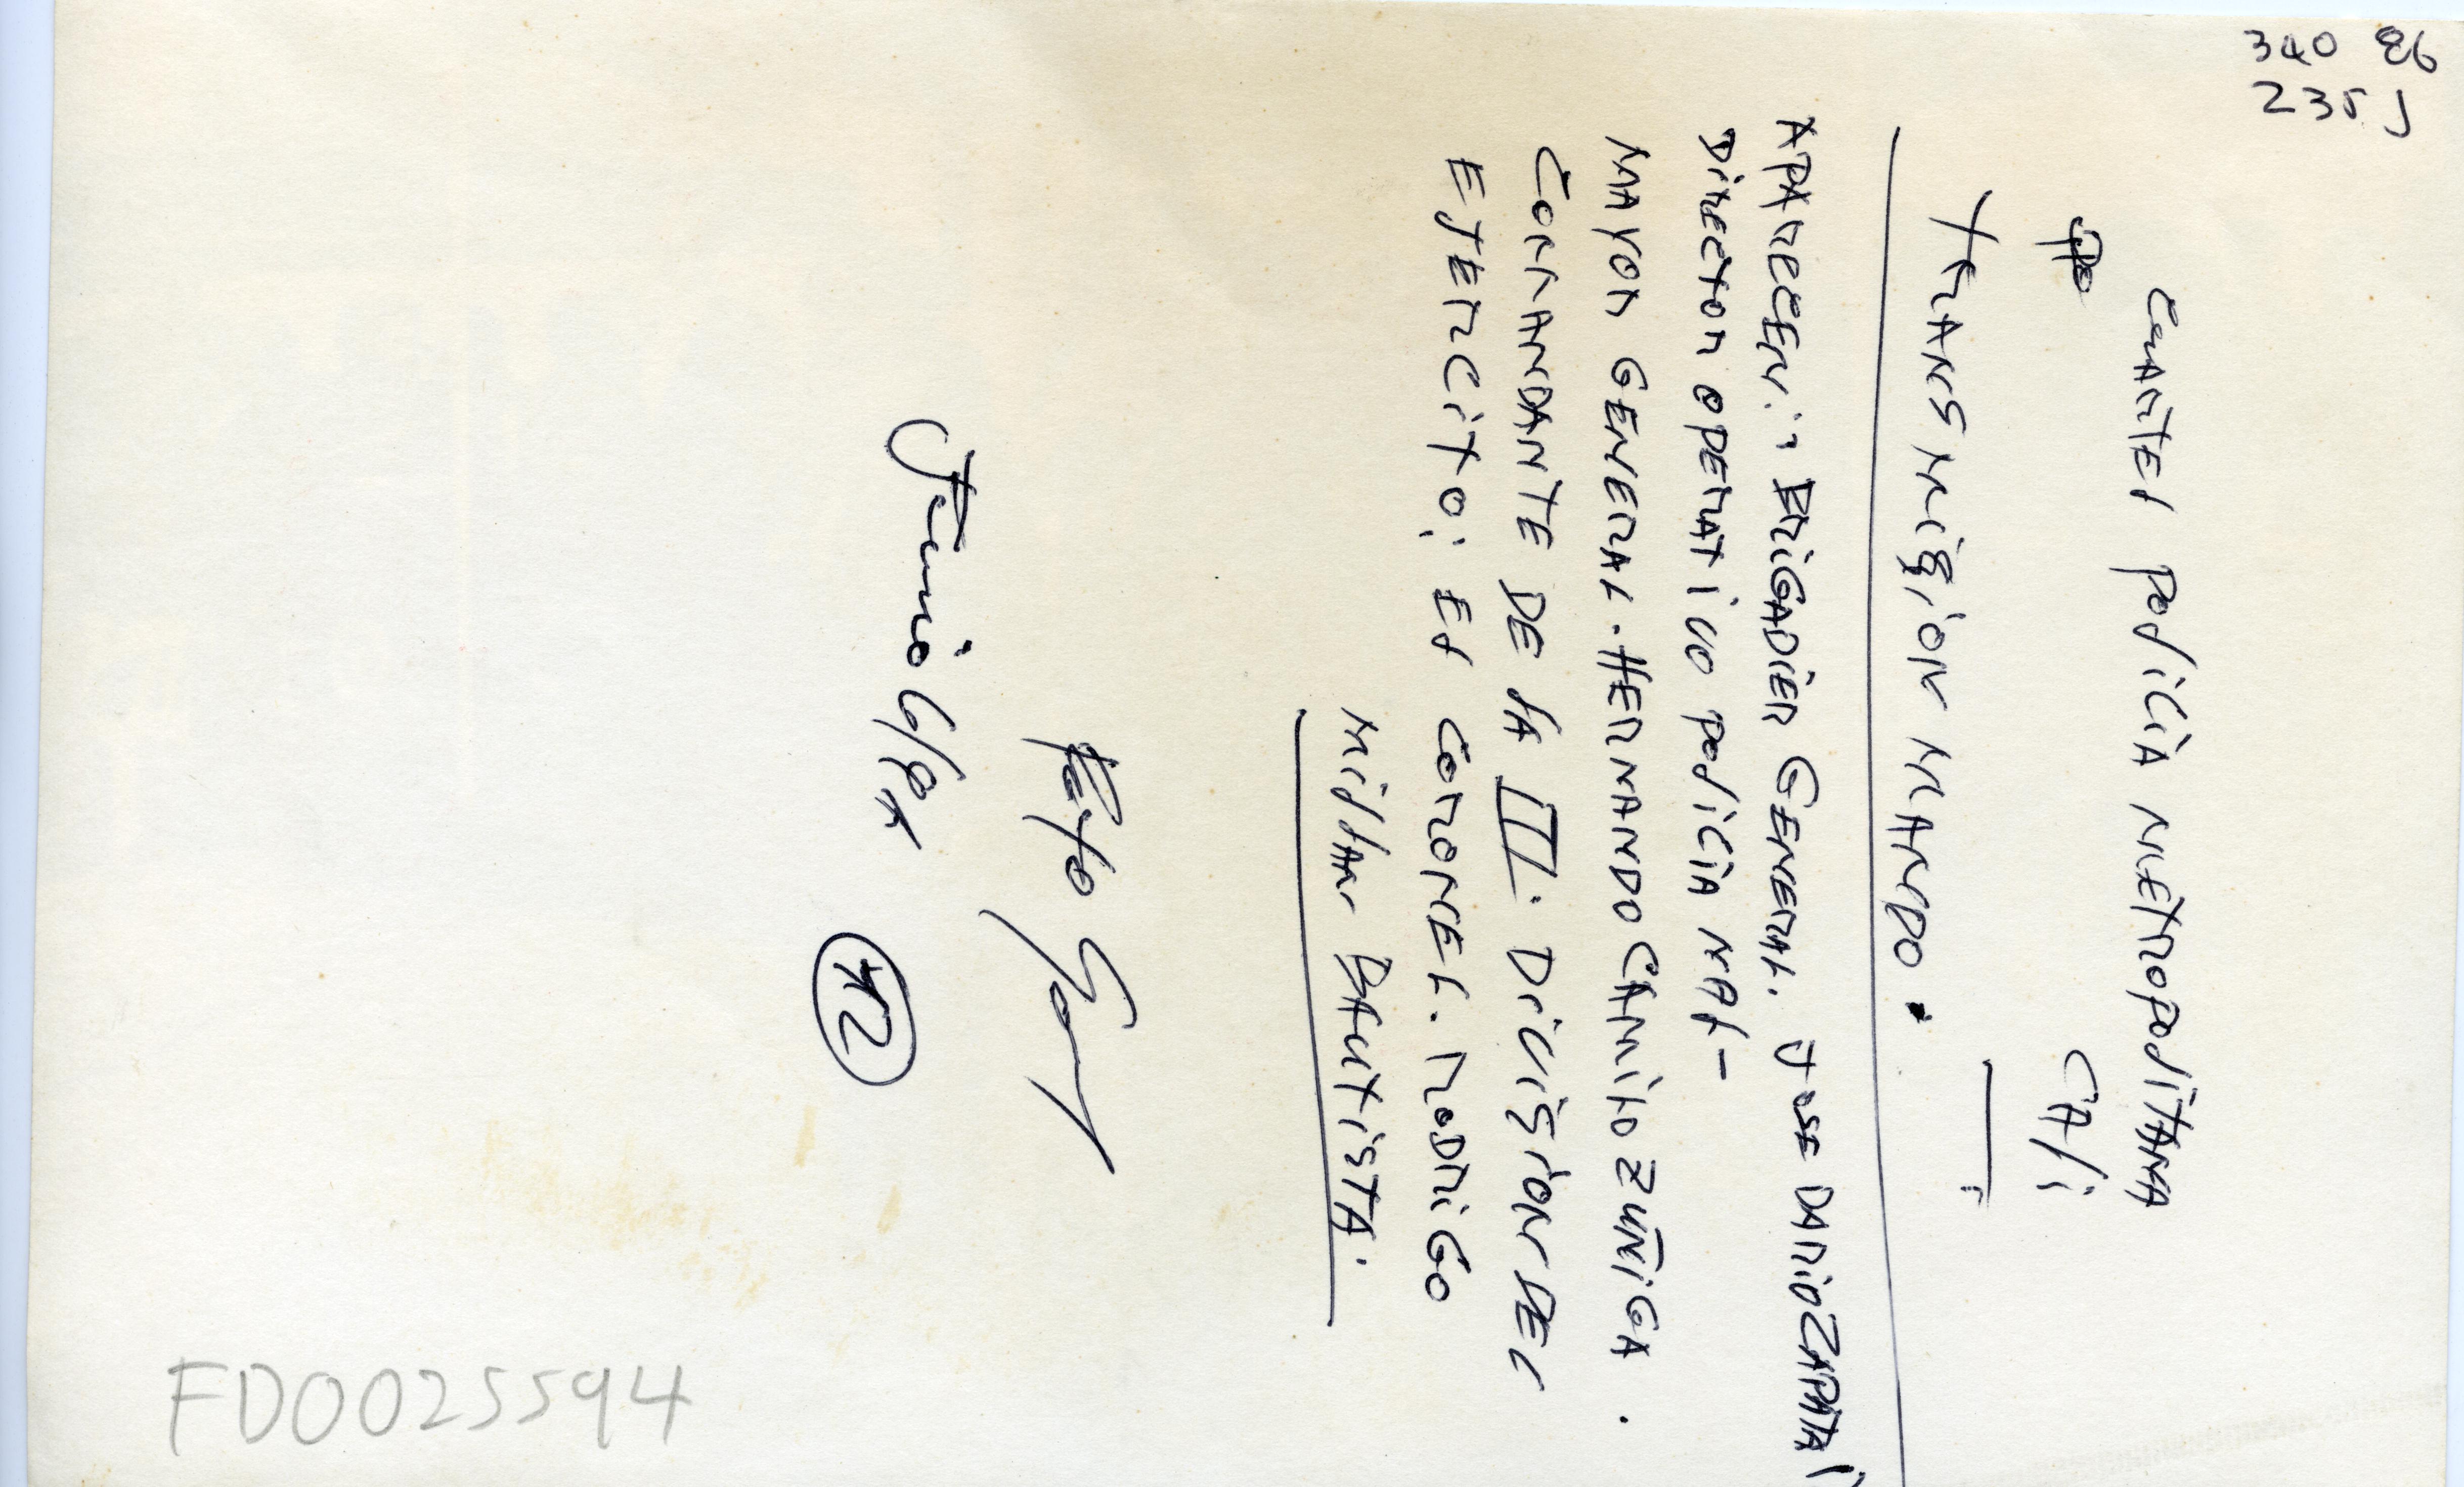 340 86
235 J
CUARTEL POLICIA METROPOLITANA
CALI
TRANSMISION MANDO.
APARECEN: BRIGADIER GENERAL. JOSE DARIO ZAPATA
DIRECTOR OPERATIVO POLICIA NAL-
MAYOR GENERAL. HERNANDO CAMILO ZUÑIGA.
COMANDANTE DE LA III. DIVISION DEL
EJERCITO: EL CORONEL. RODRIGO
MILLAN BAUTISTA.
Foto
Junio 4/98
FD0025594